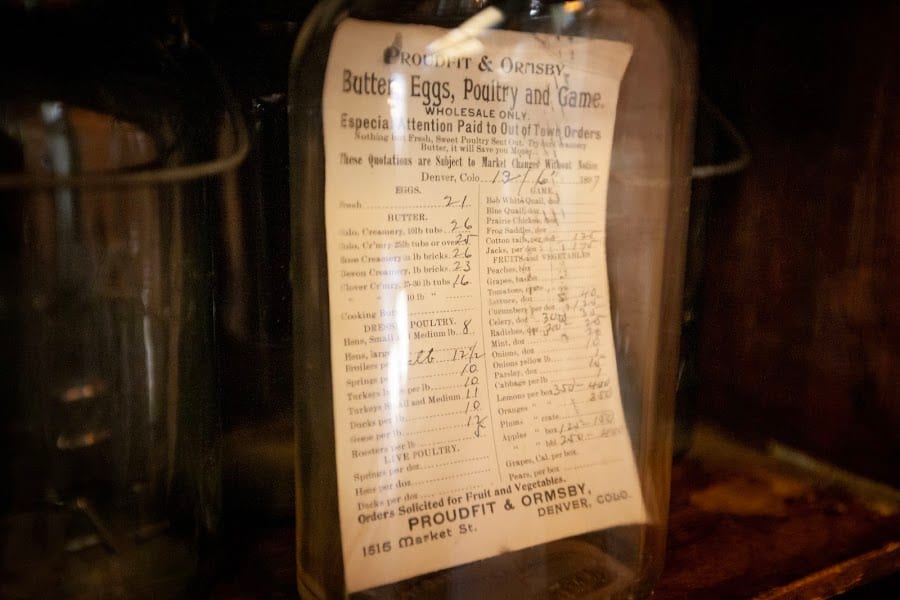 PROUDFIT & ORMSBY,
Butter, Eggs, Poultry and Game.
WHOLESALE ONLY.
Especial Attention Paid to Out of Town Orders
Nothing but Fresh, Sweet Poultry Sent Out. Try our Creamery
Butter, it will Save you Money.
These Quotations are Subject to Market Changes Without Notice
Denver, Colo. 12/6 1897
EGGS.
Fresh 21
BUTTER.
Colo. Creamery, 10lb tubs 26
Colo. Cr'mry 25lb tubs or over 25
Creamery lb bricks. 26
Devon Creamery, lb bricks. 23
Clover Cr'mry, 25-30 lb tubs 16
" " 10 lb "
Cooking Butter
DRESSED POULTRY.
Hens, Small and Medium lb. 8
Hens, large
Broilers per lb 12½
Springs 10
Turkeys per lb. 10
Turkeys Small and Medium 11
Ducks per lb. 10
Geese per lb.
Roosters per lb
LIVE POULTRY.
Springs per doz
Hens per doz
Ducks per doz
GAME.
Bob White Quail, doz
Blue Quail, doz
Prairie Chicken, doz
Frog Saddles, doz
Cotton tails, per doz 125
Jacks, per doz 175
FRUITS and VEGETABLES
Peaches, box
Grapes, basket
Tomatoes, crate
Lettuce, doz 40
Cucumbers per doz 125
Celery, doz
Radishes,
Mint, doz
Onions, doz
Onions yellow lb
Parsley, doz
Cabbage per lb
Lemons per box 350 - 400
Oranges " " 350
Plums " crate
Apples " box 125 - 150
" " bbl 250 - 400
Grapes, Cal. per box.
Pears, per box
Orders Solicited for Fruit and Vegetables.
PROUDFIT & ORMSBY,
1515 Market St. DENVER, COLO.